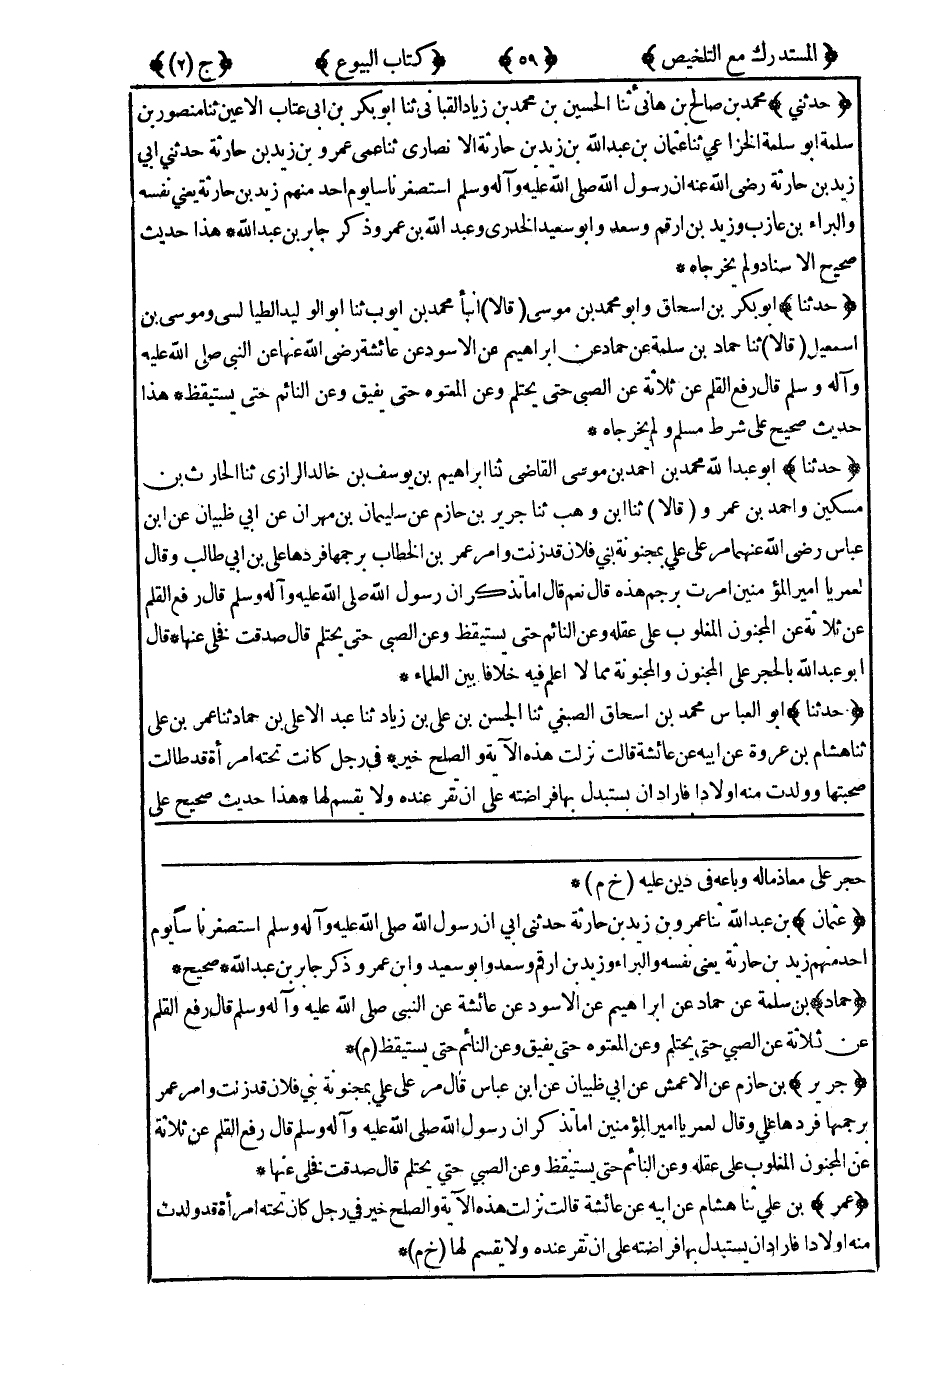 ﴿ المستدرك مع التلخيص ﴾ ﴿ ٥٩ ﴾ ﴿ كتاب البيوع ﴾ ﴿ ج (٢) ﴾
﴿ حدثني ﴾ محمد بن صالح بن هانى ثنا الحسين بن محمد بن زياد القبانى ثنا ابو بكر بن ابى عتاب الاعين ثنا منصور بن
سلمة ابو سلمة الخزاعي ثنا عثمان بن عبد الله بن زيد بن حارثة الا نصارى ثنا عمى عمر و بن زيد بن حارثة حدثني ابي
زيد بن حارثة رضى الله عنه ان رسول الله صلى الله عليه وآله وسلم استصغر ناسا يوم احد منهم زيد بن حارثة يعني نفسه
والبراء بن عازب وزيد بن ارقم وسعد وابو سعيد الخدرى وعبد الله بن عمر وذكر جابر بن عبد الله * هذا حديث
صحيح الا سناد ولم يخرجاه *
﴿ حدثنا ﴾ ابو بكر بن اسحاق وابو محمد بن موسى (قالا) انبأ محمد بن ايوب ثنا ابو الو ليد الطيا لسى وموسى بن
اسمعيل (قالا) ثنا حماد بن سلمة عن حماد عن ابراهيم عن الاسود عن عائشة رضى الله عنها عن النبي صلى الله عليه
وآله و سلم قال رفع القلم عن ثلاثة عن الصبي حتى يحتلم وعن المعتوه حتى يفيق وعن النائم حتى يستيقظ * هذا
حديث صحيح على شرط مسلم و لم يخرجاه *
﴿ حدثنا ﴾ ابو عبدا لله محمد بن احمد بن موسى القاضى ثنا ابراهيم بن يوسف بن خالد الرازى ثنا الحار ث بن
مسكين واحمد بن عمر و (قالا) ثنا ابن و هب ثنا جرير بن حازم عن سليمان بن مهران عن ابي ظبيان عن ابن
عباس رضى الله عنهما مر على علي بمجنونة بني فلان قد زنت وامر عمر بن الخطاب برجمها فردها على بن ابي طالب وقال
لعمر يا امير المؤ منين امرت برجم هذه قال نعم قال اما تذكر ان رسول الله صلى الله عليه وآله وسلم قال رفع القلم
عن ثلا ثة عن المجنون المغلو ب على عقله وعن النائم حتى يستيقظ وعن الصبى حتى يحتلم قال صدقت فخلى عنها * قال
ابو عبد الله بالحجر على المجنون والمجنونة مما لا اعلم فيه خلافا بين العلماء *
﴿ حدثنا ﴾ ابو العبا س محمد بن اسحاق الصبغي ثنا الحسن بن على بن زياد ثنا عبد الاعلى بن حماد ثنا عمر بن على
ثنا هشام بن عروة عن ابيه عن عائشة قالت نزلت هذه الآية و الصلح خير * في رجل كانت تحته امر أة قد طالت
صحبتها وولدت منه اولادا فاراد ان يستبدل بها فراضته على ان تقر عنده ولا يقسم لها * هذا حديث صحيح على
حجر على معاذ ماله وباعه فى دين عليه (خ م) *
﴿ عثمان ﴾ بن عبد الله ثنا عمرو بن زيد بن حارثة حدثنى ابي ان رسول الله صلى الله عليه وآله وسلم استصغر نا سا يوم
احد منهم زيد بن حارثة يعنى نفسه والبراء وزيد بن ارقم وسعد وابو سعيد وابن عمر و ذكر جابر بن عبد الله * صحيح *
﴿ حماد ﴾ بن سلمة عن حماد عن ابراهيم عن الاسود عن عائشة عن النبى صلى الله عليه وآله وسلم قال رفع القلم
عن ثلاثة عن الصبي حتى يحتلم وعن المعتوه حتى يفيق وعن النائم حتى يستيقظ (م) *
﴿ جرير ﴾ بن حازم عن الاعمش عن ابي ظبيان عن ابن عباس قال مر على علي بمجنونة بني فلان قد زنت وامر عمر
برجمها فردها على وقال لعمر يا امير المؤمنين اما تذكر ان رسول الله صلى الله عليه وآله وسلم قال رفع القلم عن ثلاثة
عن المجنون المغلوب على عقله وعن النائم حتى يستيقظ وعن الصبي حتي يحتلم قال صدقت فخلى عنها *
﴿ عمر ﴾ بن علي ثنا هشام عن ابيه عن عائشة قالت نزلت هذه الآية والصلح خير في رجل كان تحته امرأة قد ولدت
منه اولادا فاراد ان يستبدل بها فراضته على ان تقر عنده ولا يقسم لها (خ م) *